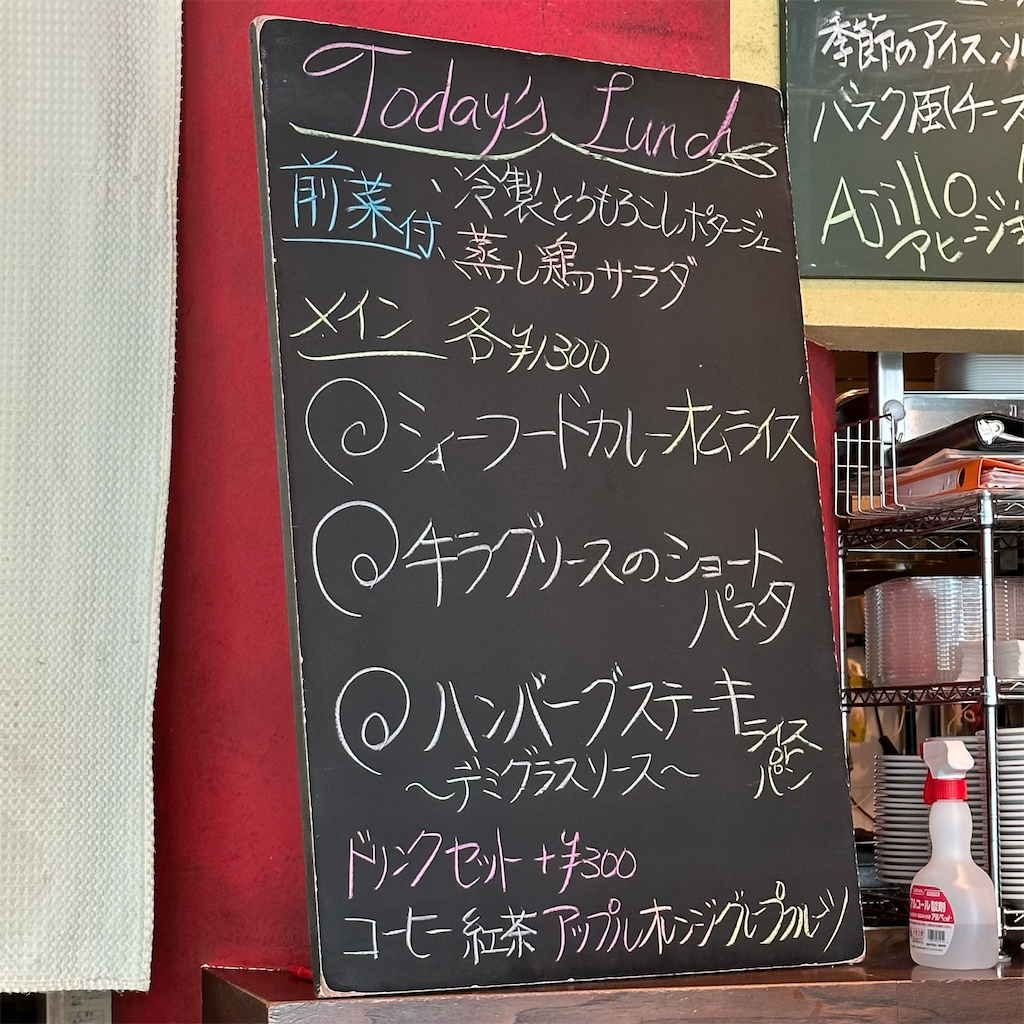 Today's Lunch
前菜付
・冷製とうもろこしポタージュ
・蒸し鶏サラダ
メイン 各¥1300
シーフードカレーオムライス
牛ラグソースのショート
パスタ
ハンバーグステーキ
〜デミグラスソース〜
ライス
or
パン
ドリンクセット +¥300
コーヒー 紅茶 アップル オレンジ グレープフルーツ
季節のアイス
バスク風チーズ
Ajillo
アヒージョ
アルコール製剤
アルペット